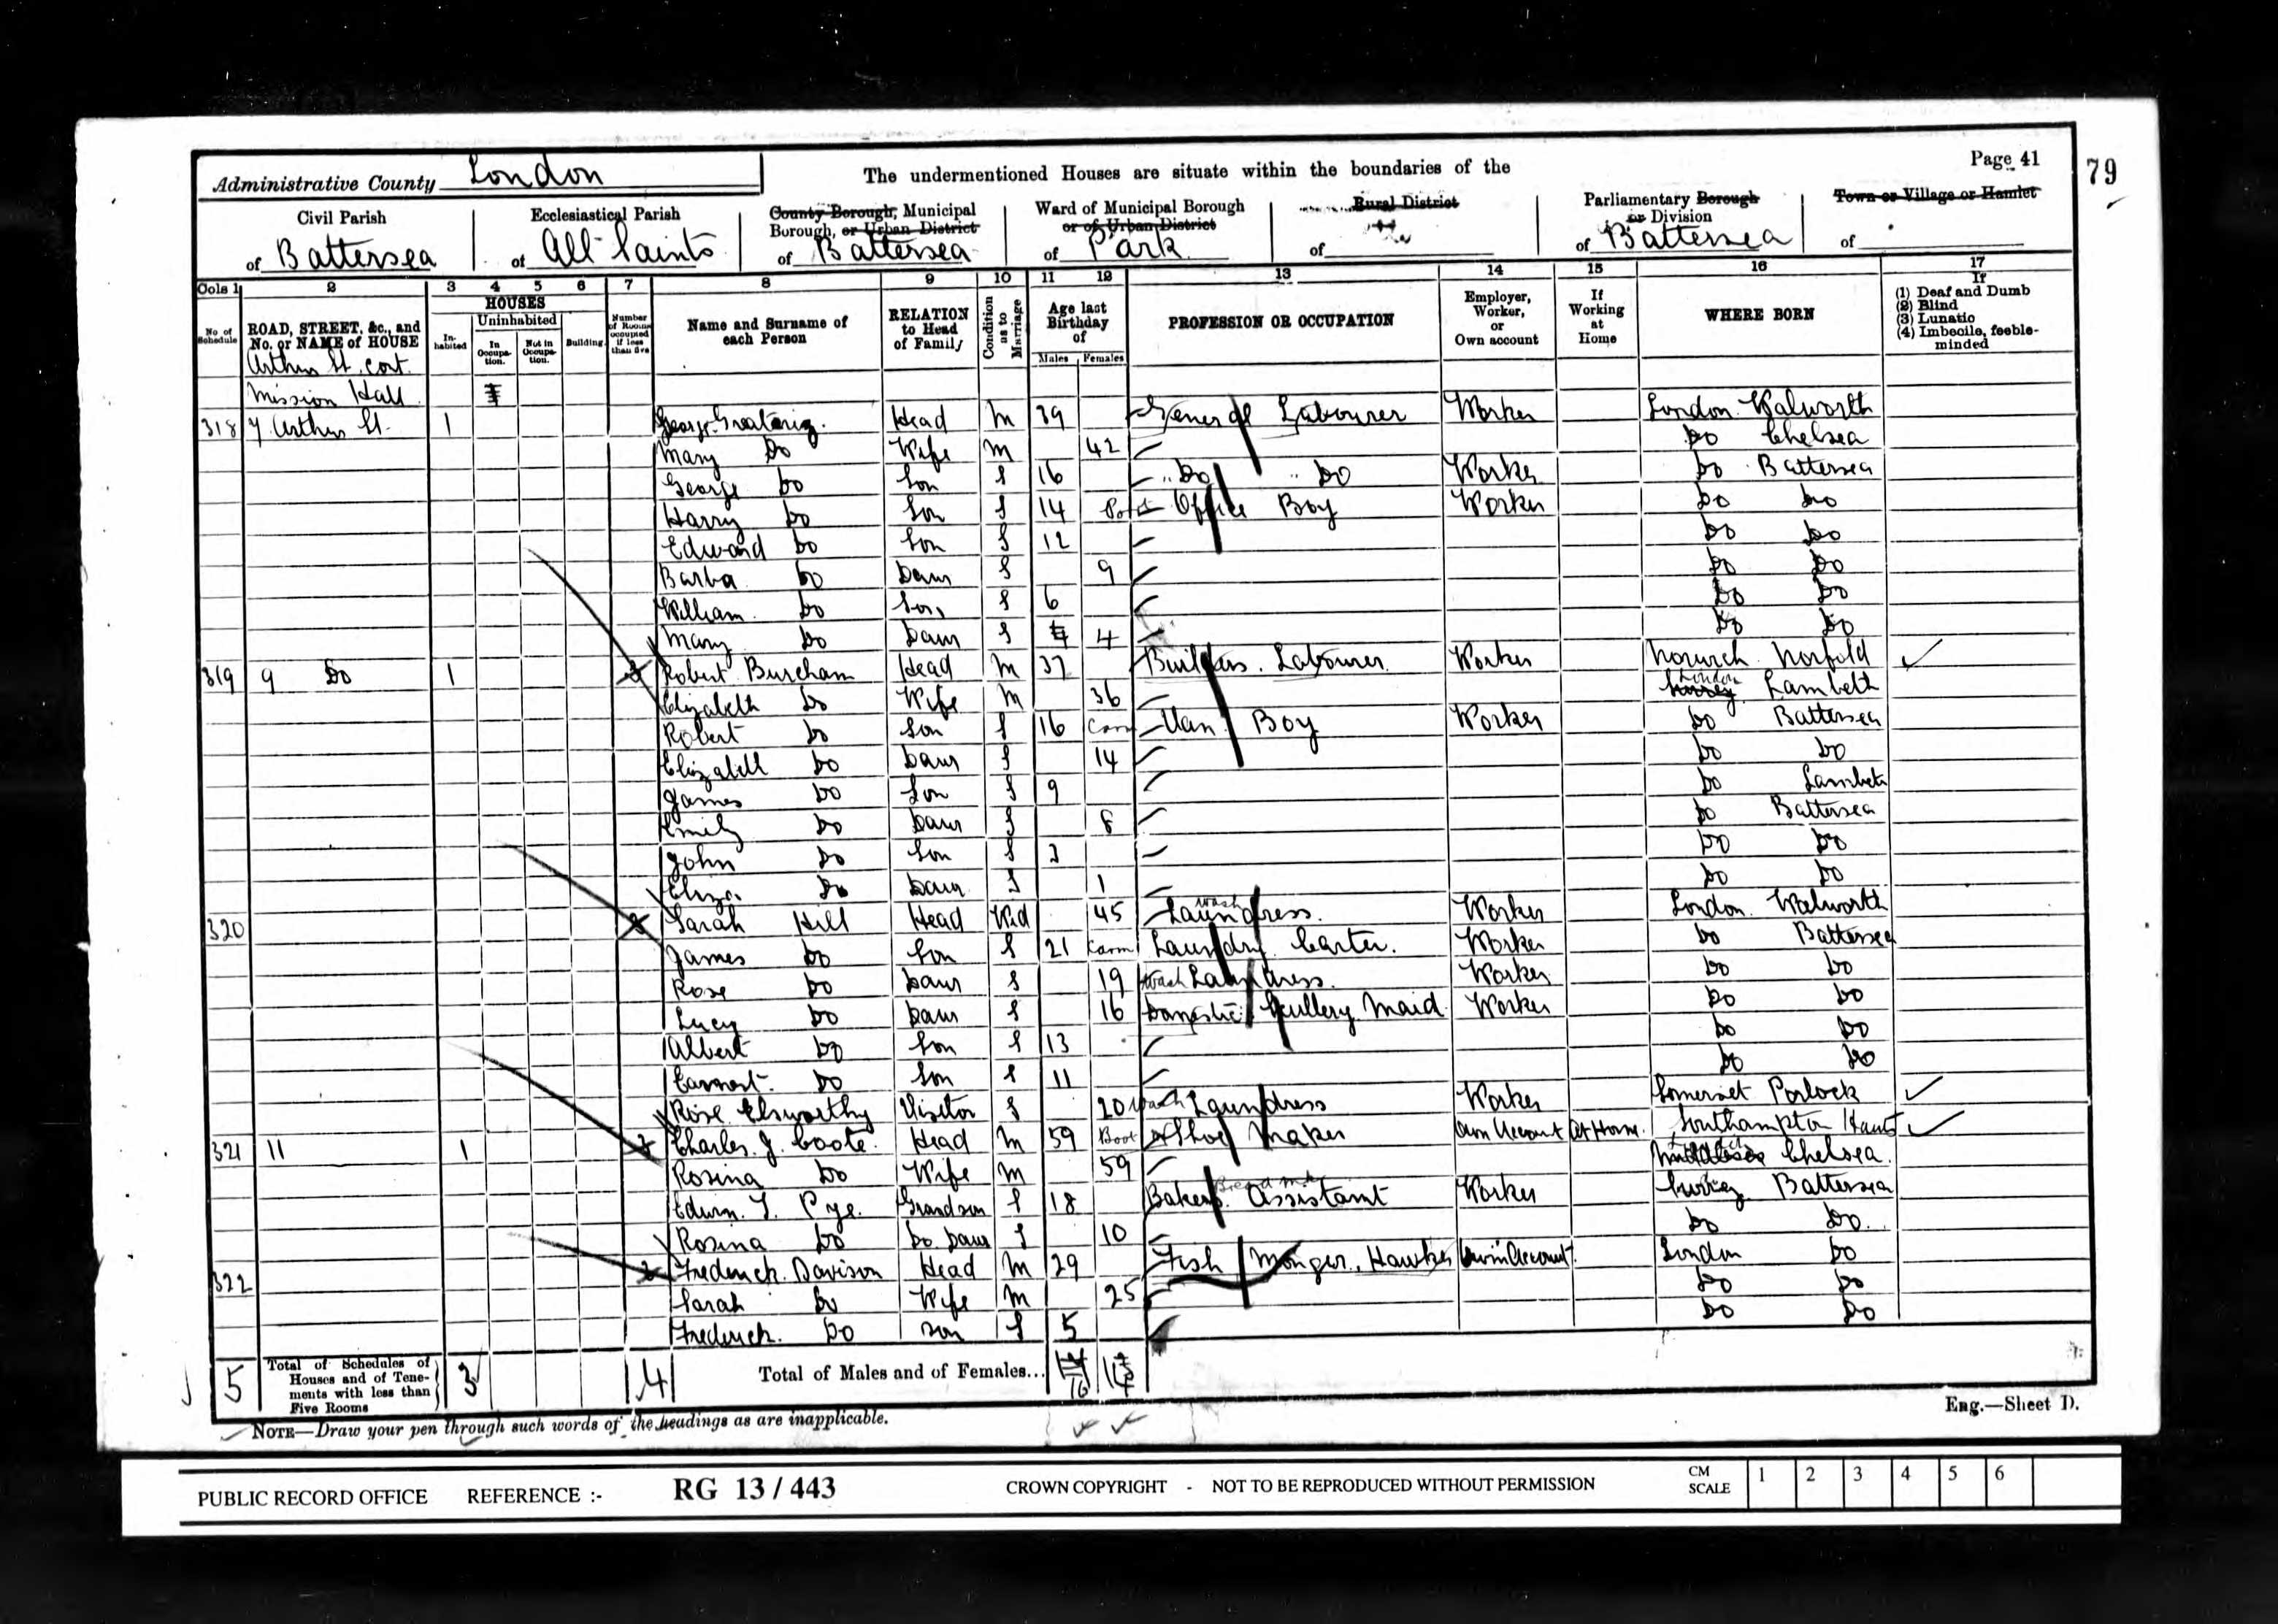 Page 41
79
Administrative County London
The undermentioned Houses are situate within the boundaries of the
Civil Parish of Battersea
Ecclesiastical Parish of All Saints
County Borough, Municipal Borough, or Urban District of Battersea
Ward of Municipal Borough or of Urban District of Park
Rural District of
Parliamentary Borough or Division of Battersea
Town or Village or Hamlet of
Cols 1 2 3 4 5 6 7 8 9 10 11 12 13 14 15 16 17
No of Schedule
ROAD, STREET, &c., and No. or NAME of HOUSE
HOUSES
In-habited
Uninhabited
In Occupa-tion.
Not in Occupa-tion.
Building
Number of Rooms occupied if less than five
Name and Surname of each Person
RELATION to Head of Family
Condition as to Marriage
Age last Birthday of
Males Females
PROFESSION OR OCCUPATION
Employer, Worker, or Own account
If Working at Home
WHERE BORN
If
(1) Deaf and Dumb
(2) Blind
(3) Lunatic
(4) Imbecile, feeble-minded
Arthur St. cont.
Mission Hall
318 7 Arthur St. 1 George Head M 39 General Labourer Worker London Walworth
Mary Do Wife M 42 Do Chelsea
George Do Son S 16 Do Do Worker Do Battersea
Harry Do Son S 14 Office Boy Worker Do Do
Edward Do Son S 12 Do Do
Barba Do Daur S 9 Do Do
William Do Son S 6 Do Do
Mary Do Daur S 4 Do Do
319 9 Do 1 3 Robert Burcham Head M 37 Builders Labourer Worker Norwich Norfolk
Elizabeth Do Wife M 36 London Lambeth
Robert Do Son S 16 Carm Van Boy Worker Do Battersea
Elizabeth Do Daur S 14 Do Do
James Do Son S 9 Do Lambeth
Emily Do Daur S 8 Do Battersea
John Do Son S 3 Do Do
Eliza Do Daur S 1 Do Do
320 Sarah Hill Head Wid 45 Wash Laundress. Worker London Walworth
James Do Son S 21 Carm Laundry Carter. Worker Do Battersea
Rose Do Daur S 19 Wash Laundress. Worker Do Do
Lucy Do Daur S 16 Domestic Scullery Maid Worker Do Do
Albert Do Son S 13 Do Do
Earnest Do Son S 11 Do Do
Rose Elsworthy Visitor S 20 Wash Laundress Worker Somerset Porlock
321 11 1 Charles J. Coote. Head M 59 Boot Shoe Maker Own Account At Home. Southampton Hants
Rosina Do Wife M 59 Chelsea.
Edwin T. Pye. Grandson S 18 Bakers Assistant Worker Surrey Battersea
Rosina Do Do Daur S 10 Do Do.
322 2 Frederick Davison Head M 29 Fish Monger, Hawker Own Account London Do
Sarah Do Wife M 25 Do Do
Frederick. Do Son S 5 Do Do
5 Total of Schedules of Houses and of Tene-ments with less than Five Rooms 3 4 Total of Males and of Females... 16 14
NOTE—Draw your pen through such words of the headings as are inapplicable.
Eng.—Sheet D.
PUBLIC RECORD OFFICE REFERENCE :- RG 13 / 443 CROWN COPYRIGHT - NOT TO BE REPRODUCED WITHOUT PERMISSION CM SCALE 1 2 3 4 5 6